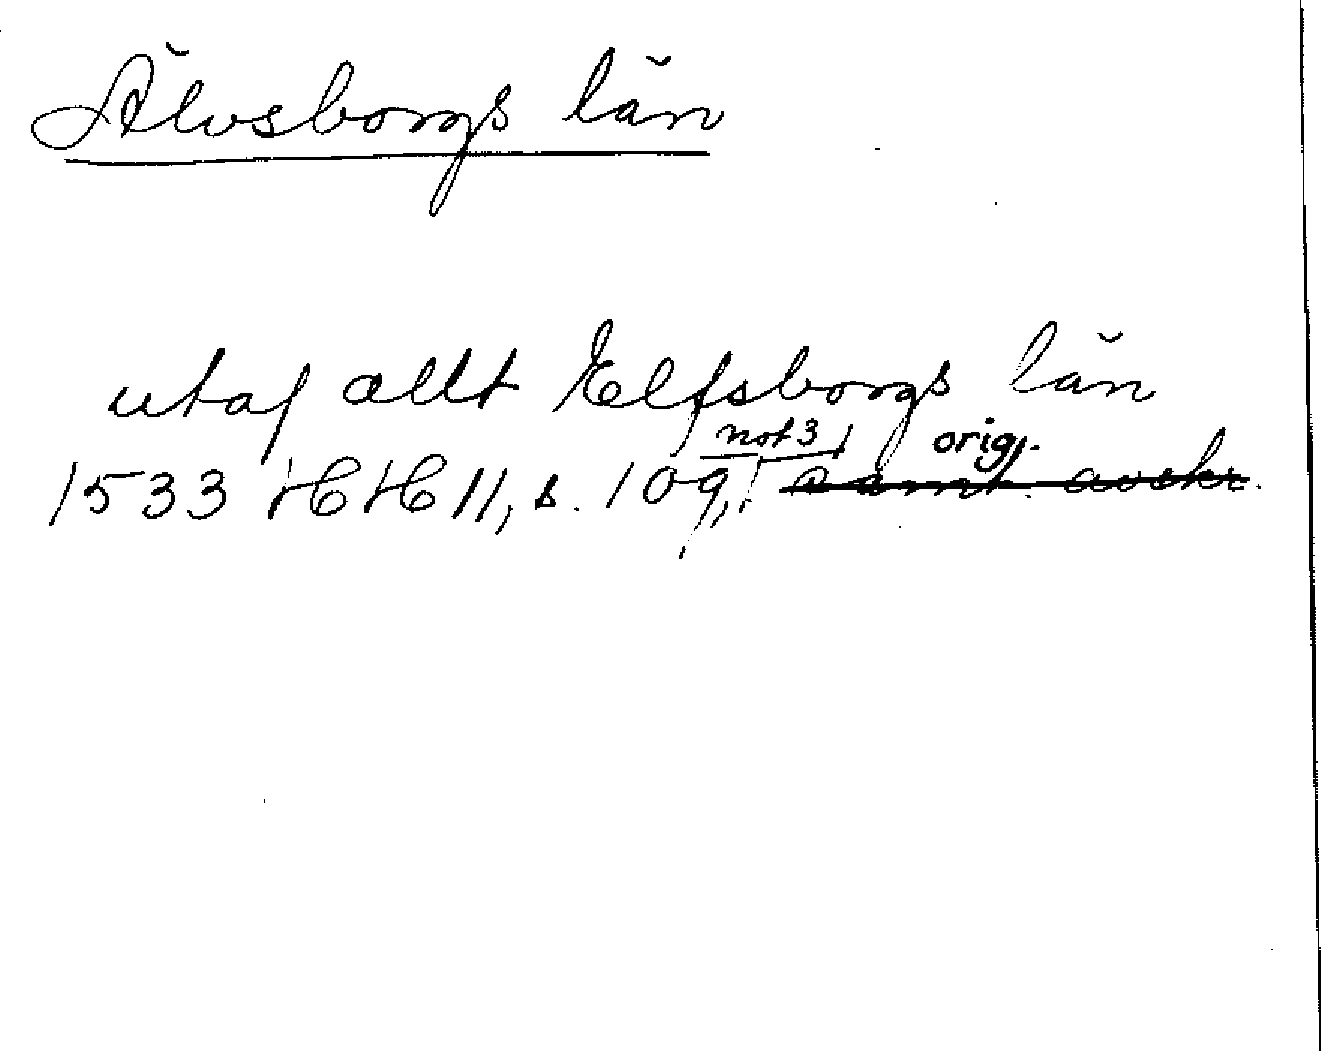 Älvsborgs län
utaf allt Elfsborgs län
not 3 orig.
1533 HH 11, s. 109, samt. avskr.